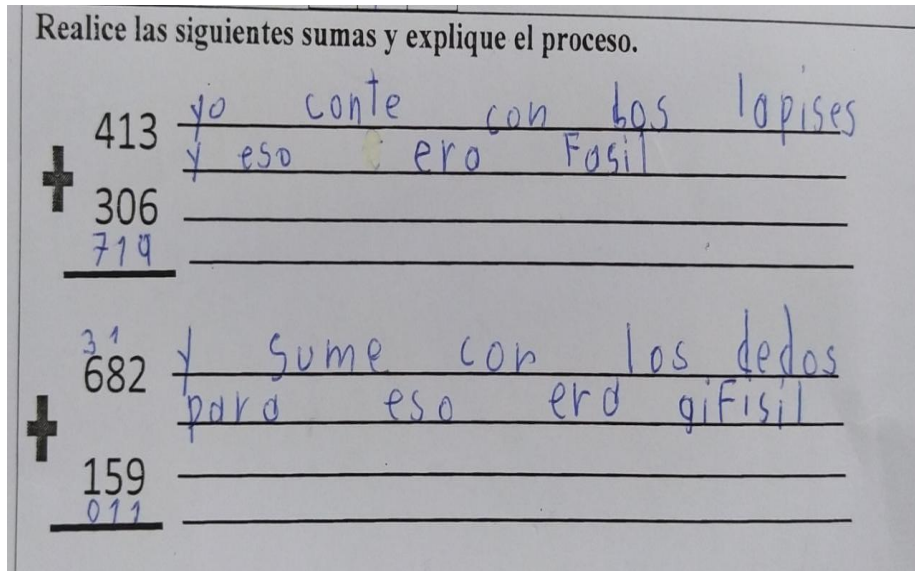 Realice las siguientes sumas y explique el proceso.
413 yo conte con los lapises
y eso era Fasil
+
306
719
3 1
682 y sume con los dedos
para eso era gifisil
+
159
011